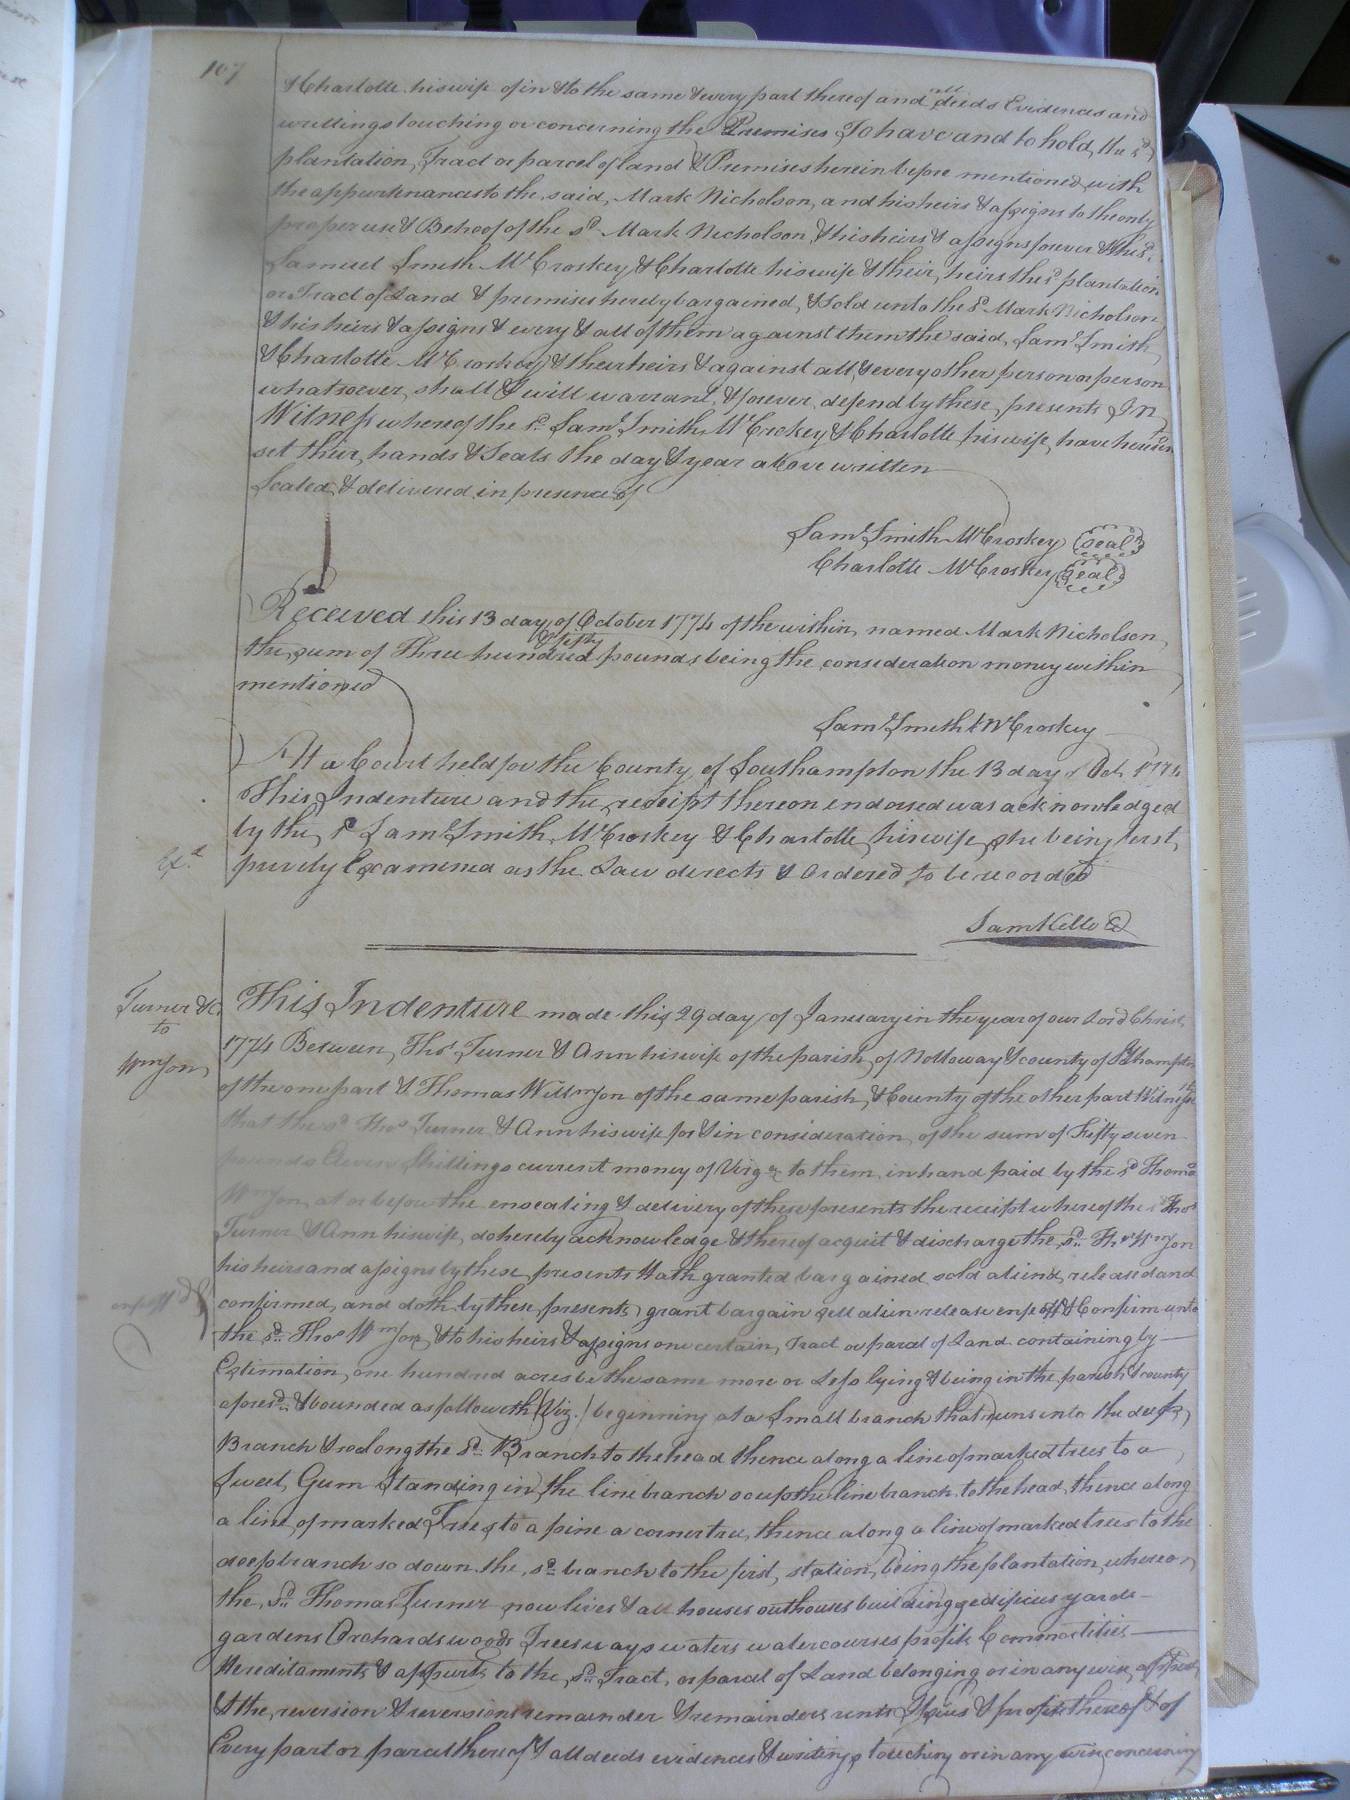 107
& Charlotte his wife of in & to the same & every part thereof and all deeds Evidences and
writtings touching or concerning the Premises To have and to hold, the sd
plantation, Tract or parcel of land & Premises herein before mentioned with
the appurtenances to the said, Mark Nicholson, and his heirs & assigns to the only
proper use & Behoof of the sd Mark Nicholson, & his heirs & assigns forever & the sd
Samuel Smith McCroskey & Charlotte his wife & their, heirs the sd plantation
or Tract of Land & premises hereby bargained, & sold unto the sd Mark Nicholson,
& his heirs & assigns & every & all of them against them the said, Saml Smith,
& Charlotte McCroskey & their heirs & against all, & every other person or person
whatsoever, shall & will warrant, & forever defend by these presents In
Witness whereof the sd Saml Smith McCrokey & Charlotte his wife, have hereunto
set their, hands & Seals the day & year above written
Sealed, & delivered in presence of
Saml Smith McCroskey (Seal)
Charlotte McCroskey (Seal)
Received this 13 day of October 1774 of the within, named Mark Nicholson,
the sum of Three hundred & fifty pounds being the consideration money within
mentioned
Saml Smith McCroskey
At a Court held for the County of Southampton the 13 day of Oct. 1774
This Indenture and the receipt thereon endorsed was acknowledged
by the sd Saml Smith, McCroskey & Charlotte, his wife, she being first,
Exd
privily Examined as the Law directs & ordered to be recorded
Sam Kello
Turner &c
to
Wmson
This Indenture made this 29 day of January in the year of our Lord Christ,
1774 Between, Thos Turner & Ann his wife of the parish, of Nottoway & county of Sthampton
of the one part & Thomas Willmson of the same parish, & County of the other part Witnesseth
that the sd Thos Turner & Ann his wife for & in consideration, of the sum of Fifty seven
pounds Seven Shillings current money of Virga to them in hand paid by the sd Thomas
Wmson, at or before the ensealing & delivery of these presents the receipt whereof the sd Thos
Turner & Ann his wife, do hereby acknowledge & thereof acquit & discharge the, sd Thos Wmson
his heirs and assigns by these, presents Hath granted bargained sold aliend, released and
enfeoffd
confirmed, and doth by these, presents, grant bargain sell alien release enfeoff & Confirm unto
the sd Thos Wmson & to his heirs & assigns one certain, Tract or parcel of Land containing by
Estimation, one hundred acres be the same more or Less lying & being in the parish & county
aforesd & bounded as followeth (Viz.) beginning at a Small branch that runs into the deep,
Branch & so along the sd Branch to the head thence along a line of marked trees to a
Sweet, Gum Standing in, the line branch so up the line branch to the head, thence along
a line, of marked Trees to a pine a corner tree, thence along a line of marked trees to the
deep branch so down the, sd branch to the first, station, being the plantation, whereon
the, sd Thomas Turner now lives & all houses outhouses buildings edificies yards
gardens Orchards woods Trees ways waters watercourses profits Commodities
Hereditaments & appurts to the, sd Tract, or parcel of Land belonging or in any wise,
& the, reversion & reversions remainder & remainders rents Issues & profits thereof & of
Every part or parcel thereof & all deeds evidences & writings touching or in any wise concerning